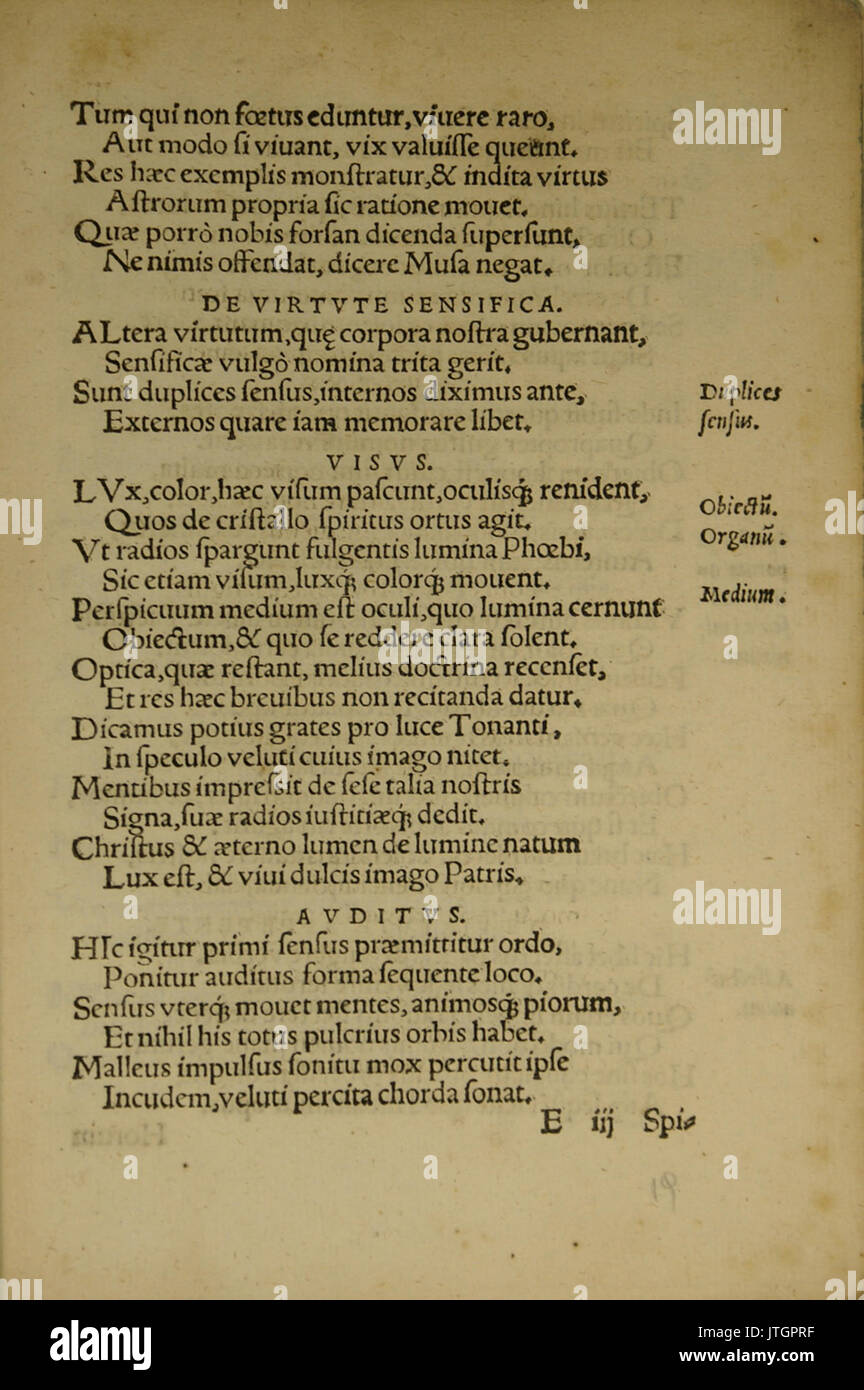 Tum qui non fœtus eduntur, viuere raro,
Aut modo ſi viuant, vix valuiſſe queunt.
Res hæc exemplis monſtratur, & indita virtus
Aſtrorum propria ſic ratione mouet.
Quæ porrò nobis forſan dicenda ſuperſunt,
Ne nimis offendat, dicere Muſa negat.
DE VIRTVTE SENSIFICA.
ALtera virtutum, quę corpora noſtra gubernant,
Senſificæ vulgò nomina trita gerit.
Sunt duplices ſenſus, internos diximus ante,
Diplices
Externos quare iam memorare libet.
ſenſus.
VISVS.
LVx, color, hæc viſum paſcunt, oculisq́; renident,
Obiectū.
Quos de criſtallo ſpiritus ortus agit.
Organū.
Vt radios ſpargunt fulgentis lumina Phœbi,
Sic etiam viſum, luxq́; colorq́; mouent.
Medium.
Perſpicuum medium eſt oculi, quo lumina cernunt
Obiectum, & quo ſe reddere clara ſolent.
Optica, quæ reſtant, melius doctrina recenſet,
Et res hæc breuibus non recitanda datur.
Dicamus potius grates pro luce Tonanti,
In ſpeculo veluti cuius imago nitet.
Mentibus impreſsit de ſeſe talia noſtris
Signa, ſuæ radios iuſtitiæq́; dedit.
Chriſtus & æterno lumen de lumine natum
Lux eſt, & viui dulcis imago Patris.
AVDITVS.
HIc igitur primi ſenſus præmittitur ordo,
Ponitur auditus forma ſequente loco.
Senſus vterq́; mouet mentes, animosq́; piorum,
Et nihil his totus pulcrius orbis habet.
Malleus impulſus ſonitu mox percutit ipſe
Incudem, veluti percita chorda ſonat.
E iij Spi-
19
alamy
alamy stock photo
JTGPRF
www.alamy.com